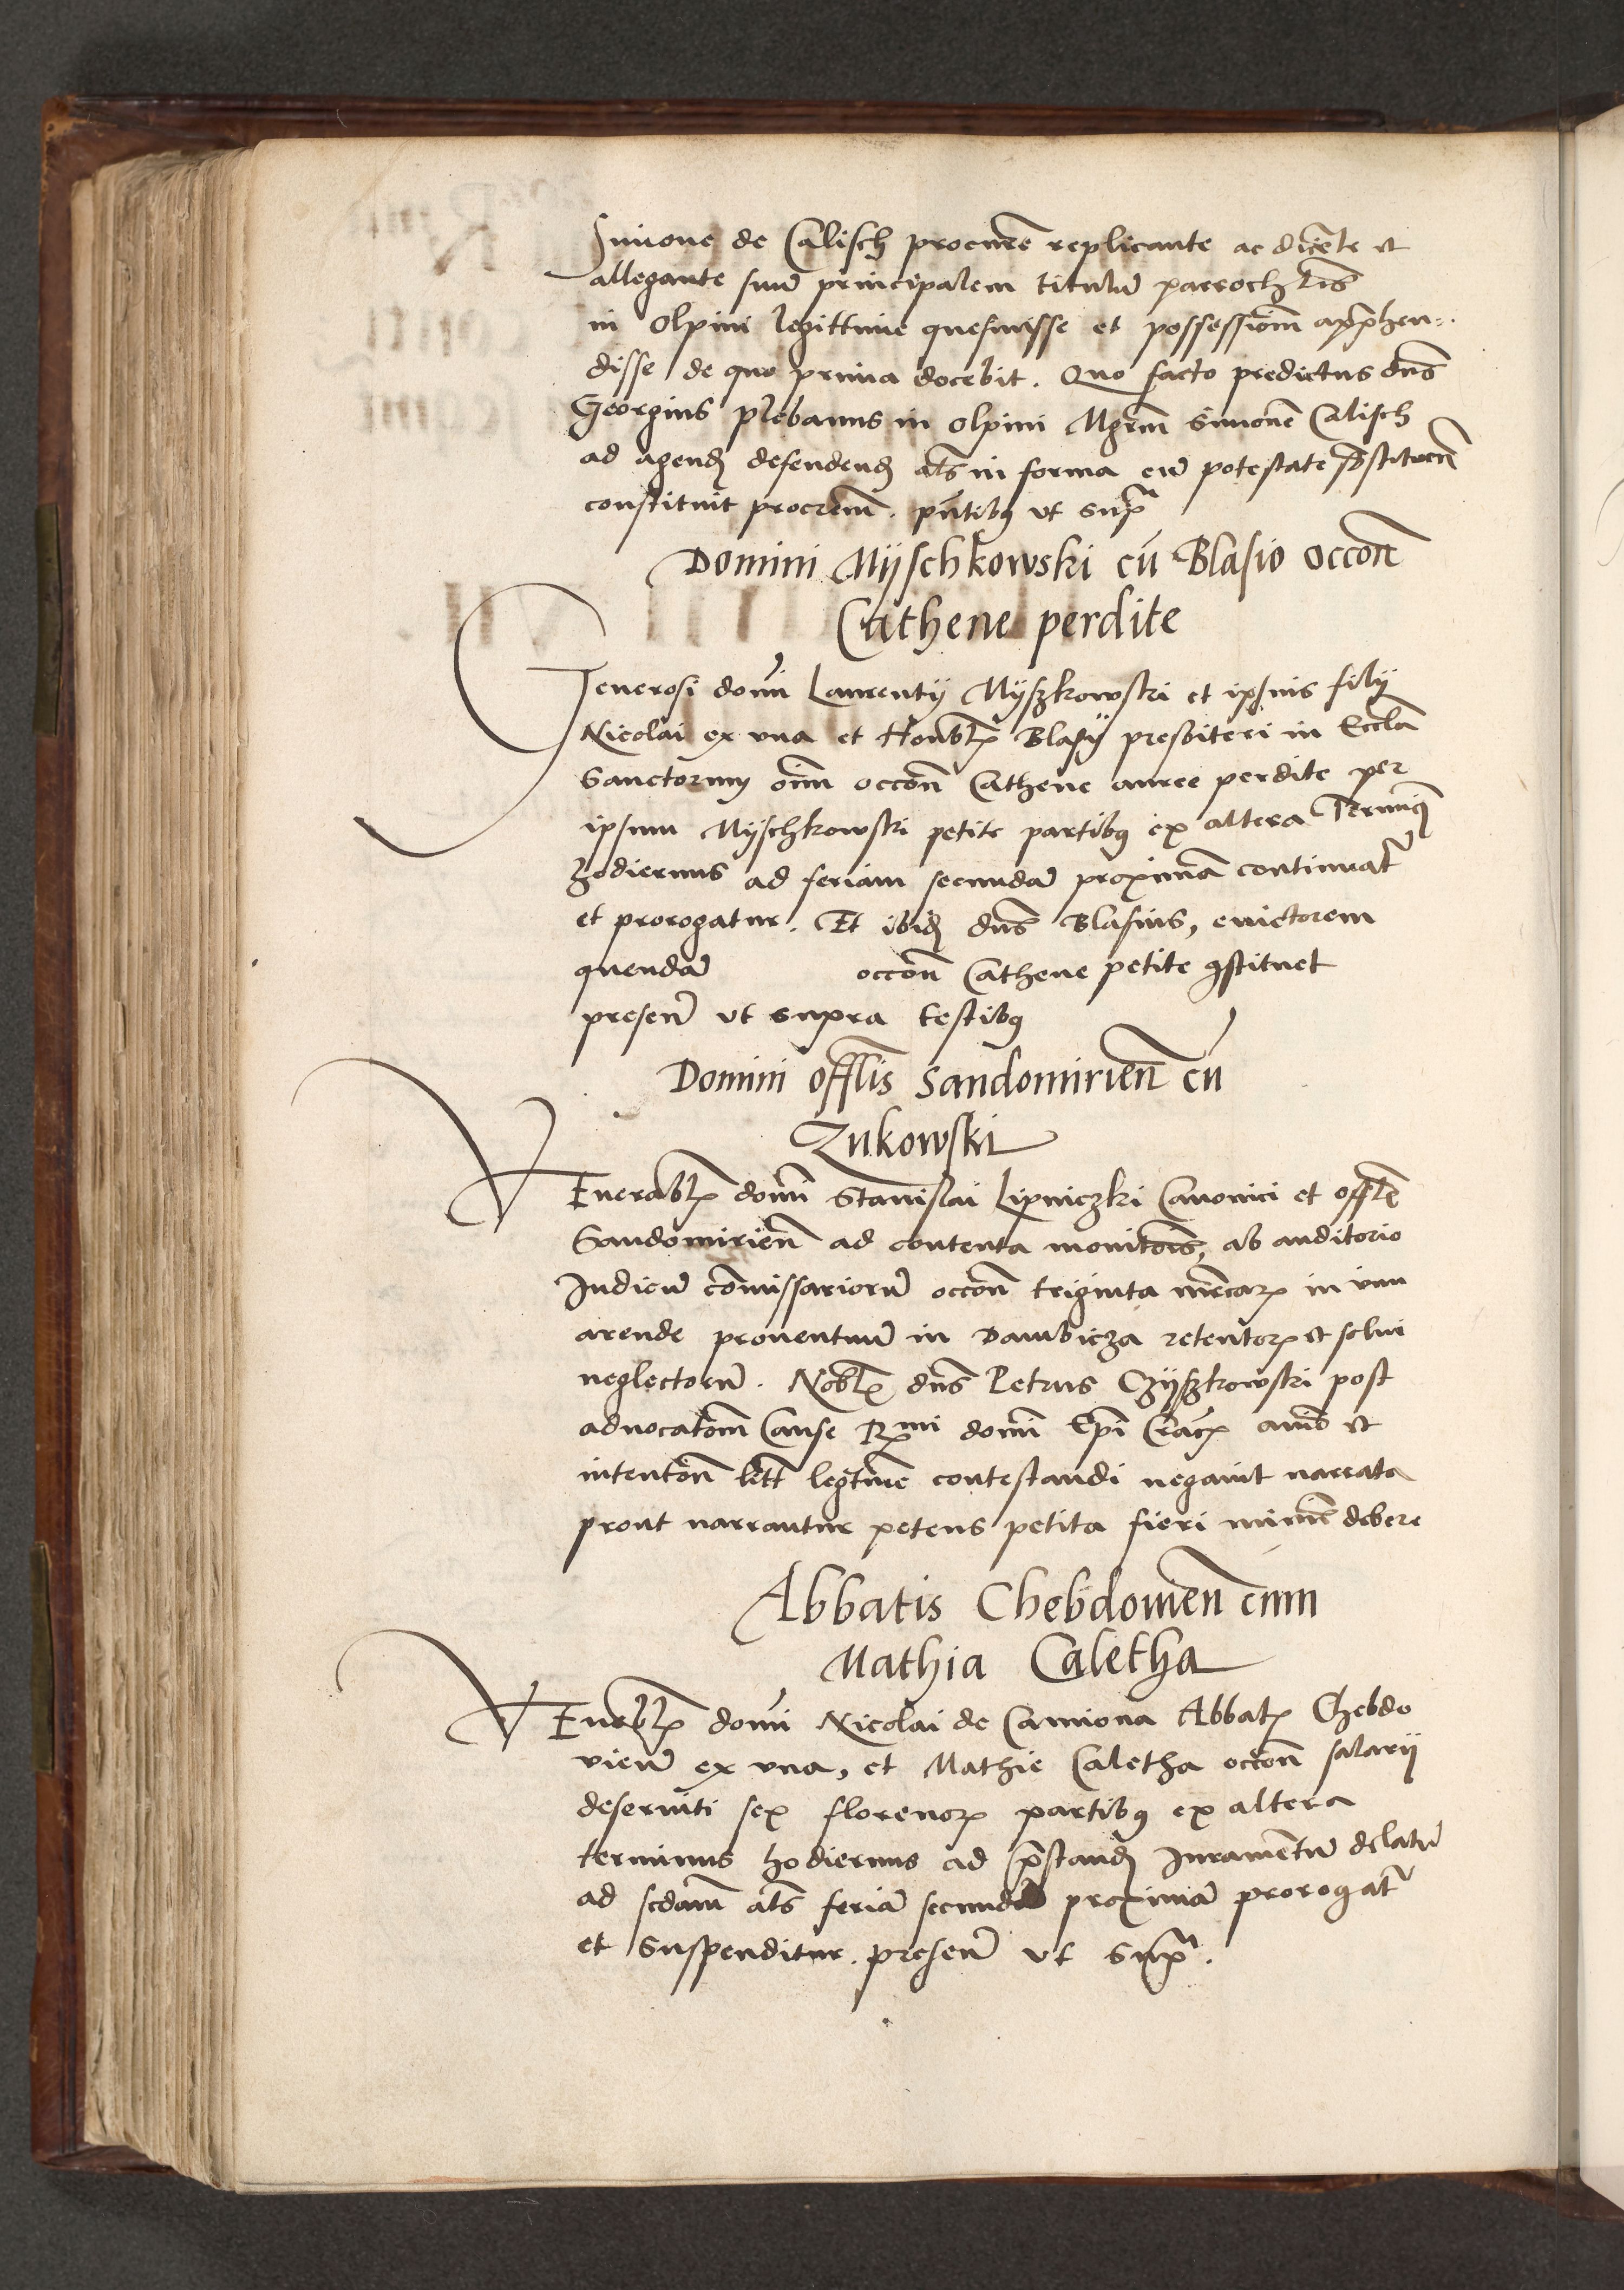 Simone de Calisch procure replicante ac dicete et
allegante suu principalem titulu parroch
in Olpini legittime quesiuisse et possessiom apphen=
disse de quo prima docebit. Quo facto predictus dns
Georgius plebanus in Olpini Mgrm Simone Calisch
ad agend defendend als in forma cu potestate sbstituen
constituit procrem. pntibus vt supra
Domini Myschkowski cu Blasio occon
Cathene perdite
Generosi domi Laurentij Myszkowski et ipsius filij
Nicolai ex vna et Honbl Blasij presbiteri in Eccla
Sanctorum oim occon Cathene auree perdite per
ipsum Myschkowski petite partibus ex altera Terminus
hodiernus ad feriam secunda proxima continuat
et prorogatur. Et ibid dns Blasius, euictorem
quenda occon Cathene petite constituet
presen vt supra testibus
Domini offlis Sandomirien cu
Zukowski
Venerabl domi Stanislai Lipniczki Canonici et offlis
Sandomirien ad contenta monitois, ab auditorio
Iudicu comissarioru occon triginta mrcar in vim
arende prouentuu in Dambicza retentor et solui
neglectoru. Nobl dns Petrus Czyszkowski post
aduocatom Cause Rmi domi Epi Crac aio et
intenton litt legtime contestandi negauit narrata
prout narrantur petens petita fieri minime debere
Abbatis Chebdouien cum
Mathia Caletha
Venerbl domi Nicolai de Camiona Abbat Chebdo
vien ex vna, et Mathie Caletha occon salarij
deseruiti sex florenor partibus ex altera
terminus hodiernus ad pstand Iuramentu delatu
ad scdam als feria secunda proxima prorogat
et suspenditur. presen vt supra.